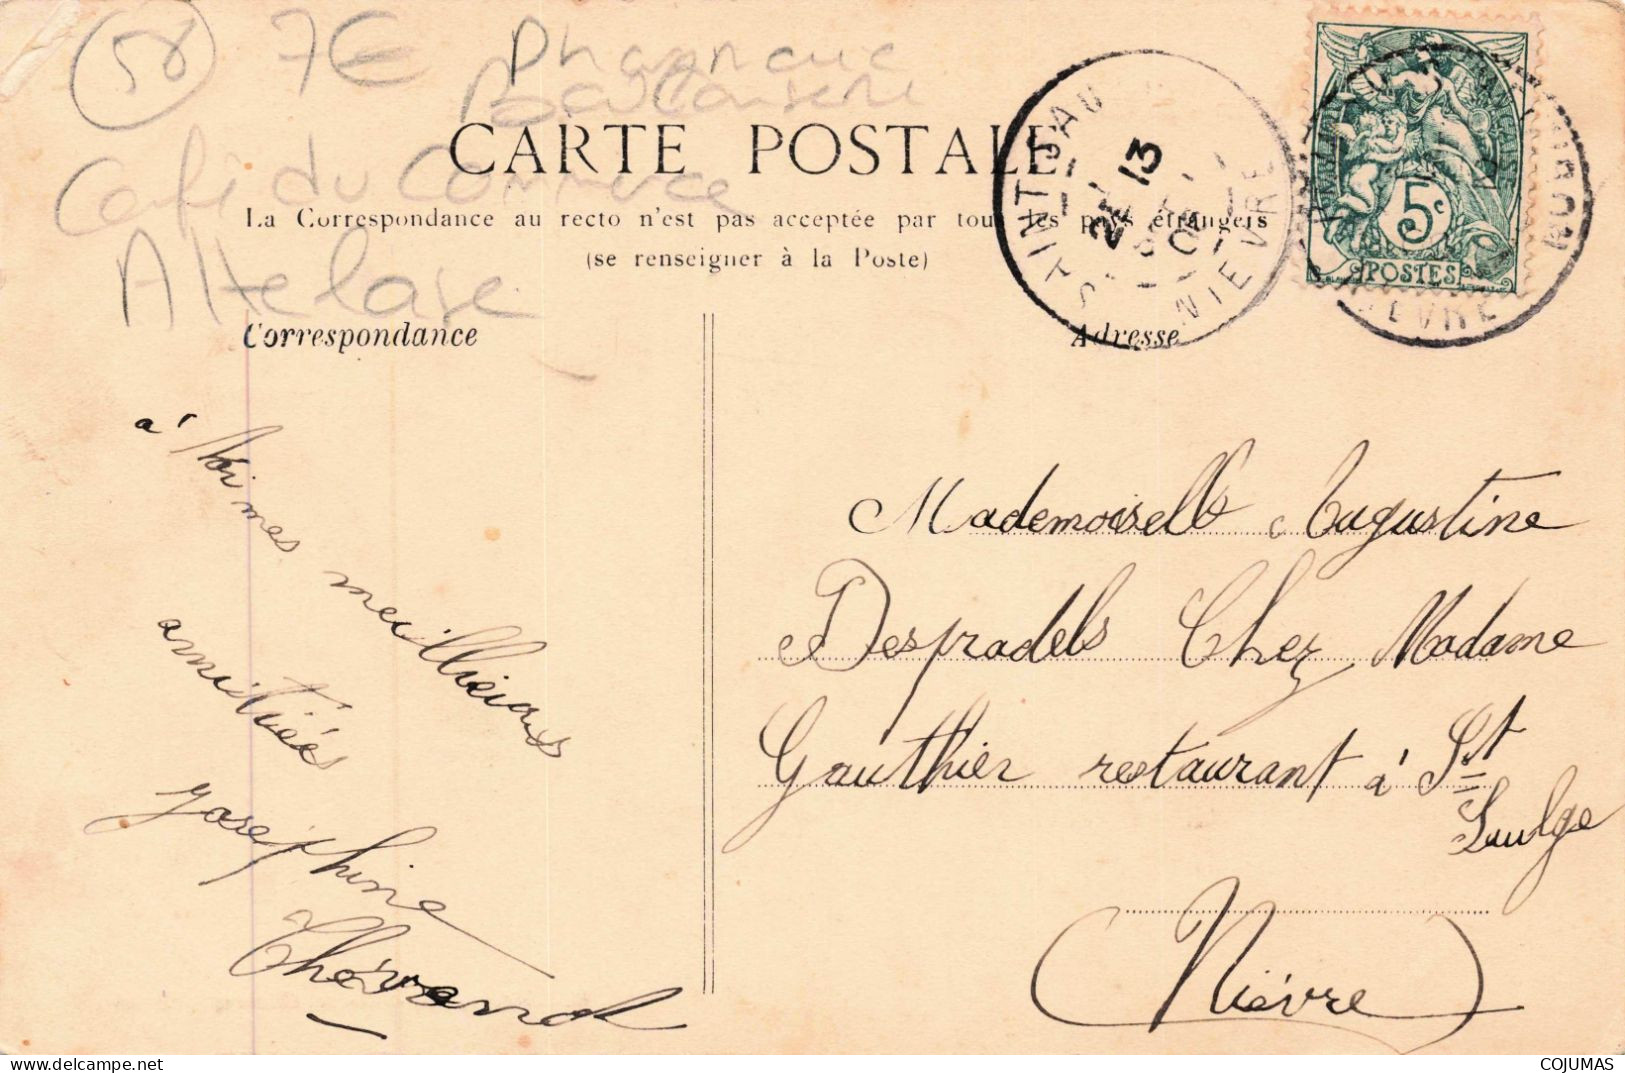 58
7€
Pharmacie
Boulangerie
Café du Commerce
Attelage
CARTE POSTALE
La Correspondance au recto n'est pas acceptée par tous les pays étrangers
(se renseigner à la Poste)
Correspondance
Adresse
SAINT
13
NIEVRE
5c
POSTES
NIEVRE
à toi mes meillieurs
amitiées
Joséphine
Thévenard
Mademoiselle Augustine
Despradels Chez Madame
Gauthier restaurant à St
Saulge
(Nièvre)
COJUMAS